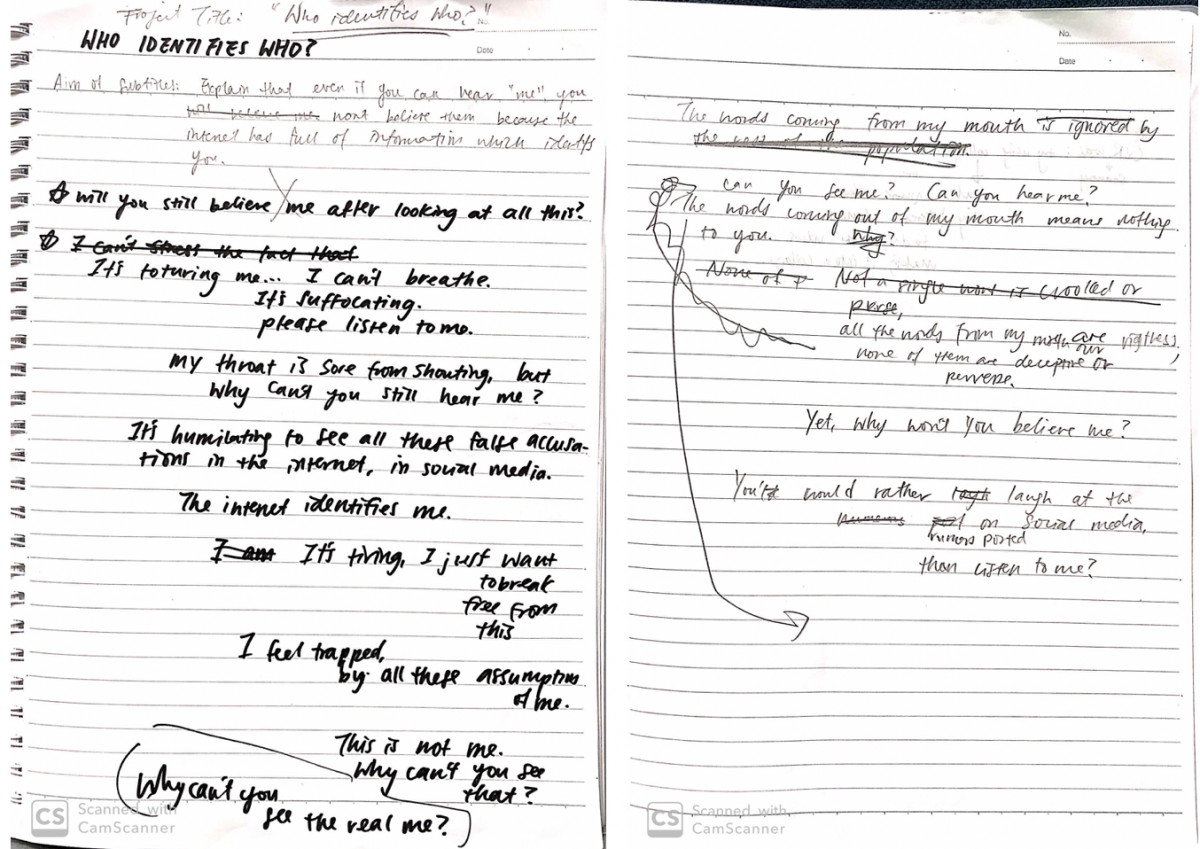 Project Title: "Who identifies who?"
No.
WHO IDENTIFIES WHO?
Date
Aim of Subtitles: Explain that even if you can hear "me", you
will believe me wont believe them because the
internet has full of information which identifys
you.
will you still believe me after looking at all this?
I can't stress the fact that
It's toturing me... I can't breathe.
It's suffocating.
please listen to me.
My throat is sore from shouting, but
why can't you still hear me?
It's humilating to see all these false accusa-
tions in the internet, in social media.
The internet identifies me.
I am It's tiring, I just want
to break
free from
this
I feel trapped,
by all these assumptions
of me.
This is not me.
Why can't you see
that?
Why can't you
see the real me?
CS Scanned with
CamScanner
No.
Date
The words coming from my mouth is ignored by
the rest of the population.
Can you see me? Can you hear me?
The words coming out of my mouth means nothing
to you. Why?
None of Not a single word is crooked or
all the words from my mouth are
none of them are deceptive or
perverse.
Yet, why won't you believe me?
would rather laugh at the
on social media,
rumors posted
than listen to me?
CS Scanned with
CamScanner